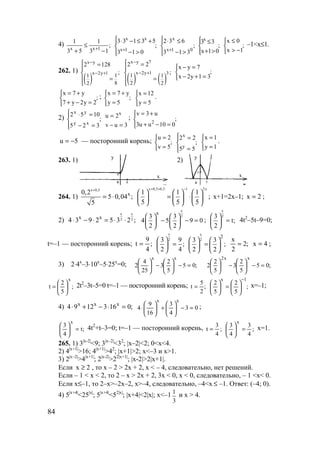 4) 1/(3^x + 5) ≤ 1/(3^(x+1) − 1); { 3·3^x − 1 ≤ 3^x + 5; 3^(x+1) − 1 > 0 { 2·3^x ≤ 6; 3^(x+1) − 1 > 3^0 { 3^x ≤ 3; x + 1 > 0 { x ≤ 0; x > −1. −1<x≤1.
262. 1) { 2^(x−y) = 128; (1/2)^(x−2y+1) = 1/8 { 2^(x−y) = 2^7; (1/2)^(x−2y+1) = (1/2)^3 { x − y = 7; x − 2y + 1 = 3;
{ x = 7 + y; 7 + y − 2y = 2 { x = 7 + y; y = 5 { x = 12; y = 5 .
2) { 2^x · 5^y = 10; 5^y − 2^x = 3. { u = 2^x; v − u = 3 { v = 3 + u; 3u + u² − 10 = 0;
u = −5 — посторонний корень; { u = 2; v = 5 { 2^x = 2; 5^y = 5 { x = 1; y = 1 .
263. 1) 2)
264. 1) 0,2^(x+0,5)/√5 = 5·0,04^x; (1/5)^(x+0,5+0,5) = (1/5)^(−1) · (1/5)^(2x); x+1=2x–1; x = 2 ;
2) 4·3^x − 9·2^x = 5·3^(x/2)·2^(x/2); 4·(3/2)^x − 5(3/2)^(x/2) − 9 = 0; (3/2)^(x/2) = t; 4t²–5t–9=0;
t=–1 — посторонний корень, t = 9/4; (3/2)^(x/2) = 9/4; (3/2)^(x/2) = (3/2)^2; x/2 = 2; x = 4 ;
3) 2·4^x–3·10^x–5·25^x=0; 2(4/25)^x − 3(2/5)^x − 5 = 0; 2(2/5)^(2x) − 3(2/5)^x − 5 = 0;
t = (2/5)^x; 2t²–3t–5=0 t=–1 — посторонний корень; t = 5/2; (2/5)^x = (2/5)^(−1) x=–1;
4) 4·9^x + 12^x − 3·16^x = 0; 4·(9/16)^x + (3/4)^x − 3 = 0 ;
(3/4)^x = t; 4t²+t–3=0; t=–1 — посторонний корень, t = 3/4; (3/4)^x = 3/4; x=1.
265. 1) 3^|x–2|<9; 3^|x–2|<3²; |x–2|<2; 0<x<4.
2) 4^|x+1|>16; 4^|x+1|>4²; |x+1|>2; x<–3 и x>1.
3) 2^|x–2|>4^|x+1|; 2^|x–2|>2^2|x+1|; |x–2|>2|x+1|.
Если x ≥ 2 , то x – 2 > 2x + 2, x < – 4, следовательно, нет решений.
Если – 1 < x < 2, то 2 – x > 2x + 2, 3x < 0, x < 0, следовательно, – 1 <x< 0.
Если x≤–1, то 2–x>–2x–2, x>–4, следовательно, –4<x ≤ –1. Ответ: (–4; 0).
4) 5^|x+4|<25^|x|; 5^|x+4|<5^2|x|; |x+4|<2|x|; x<–1 1/3 и x > 4.
84